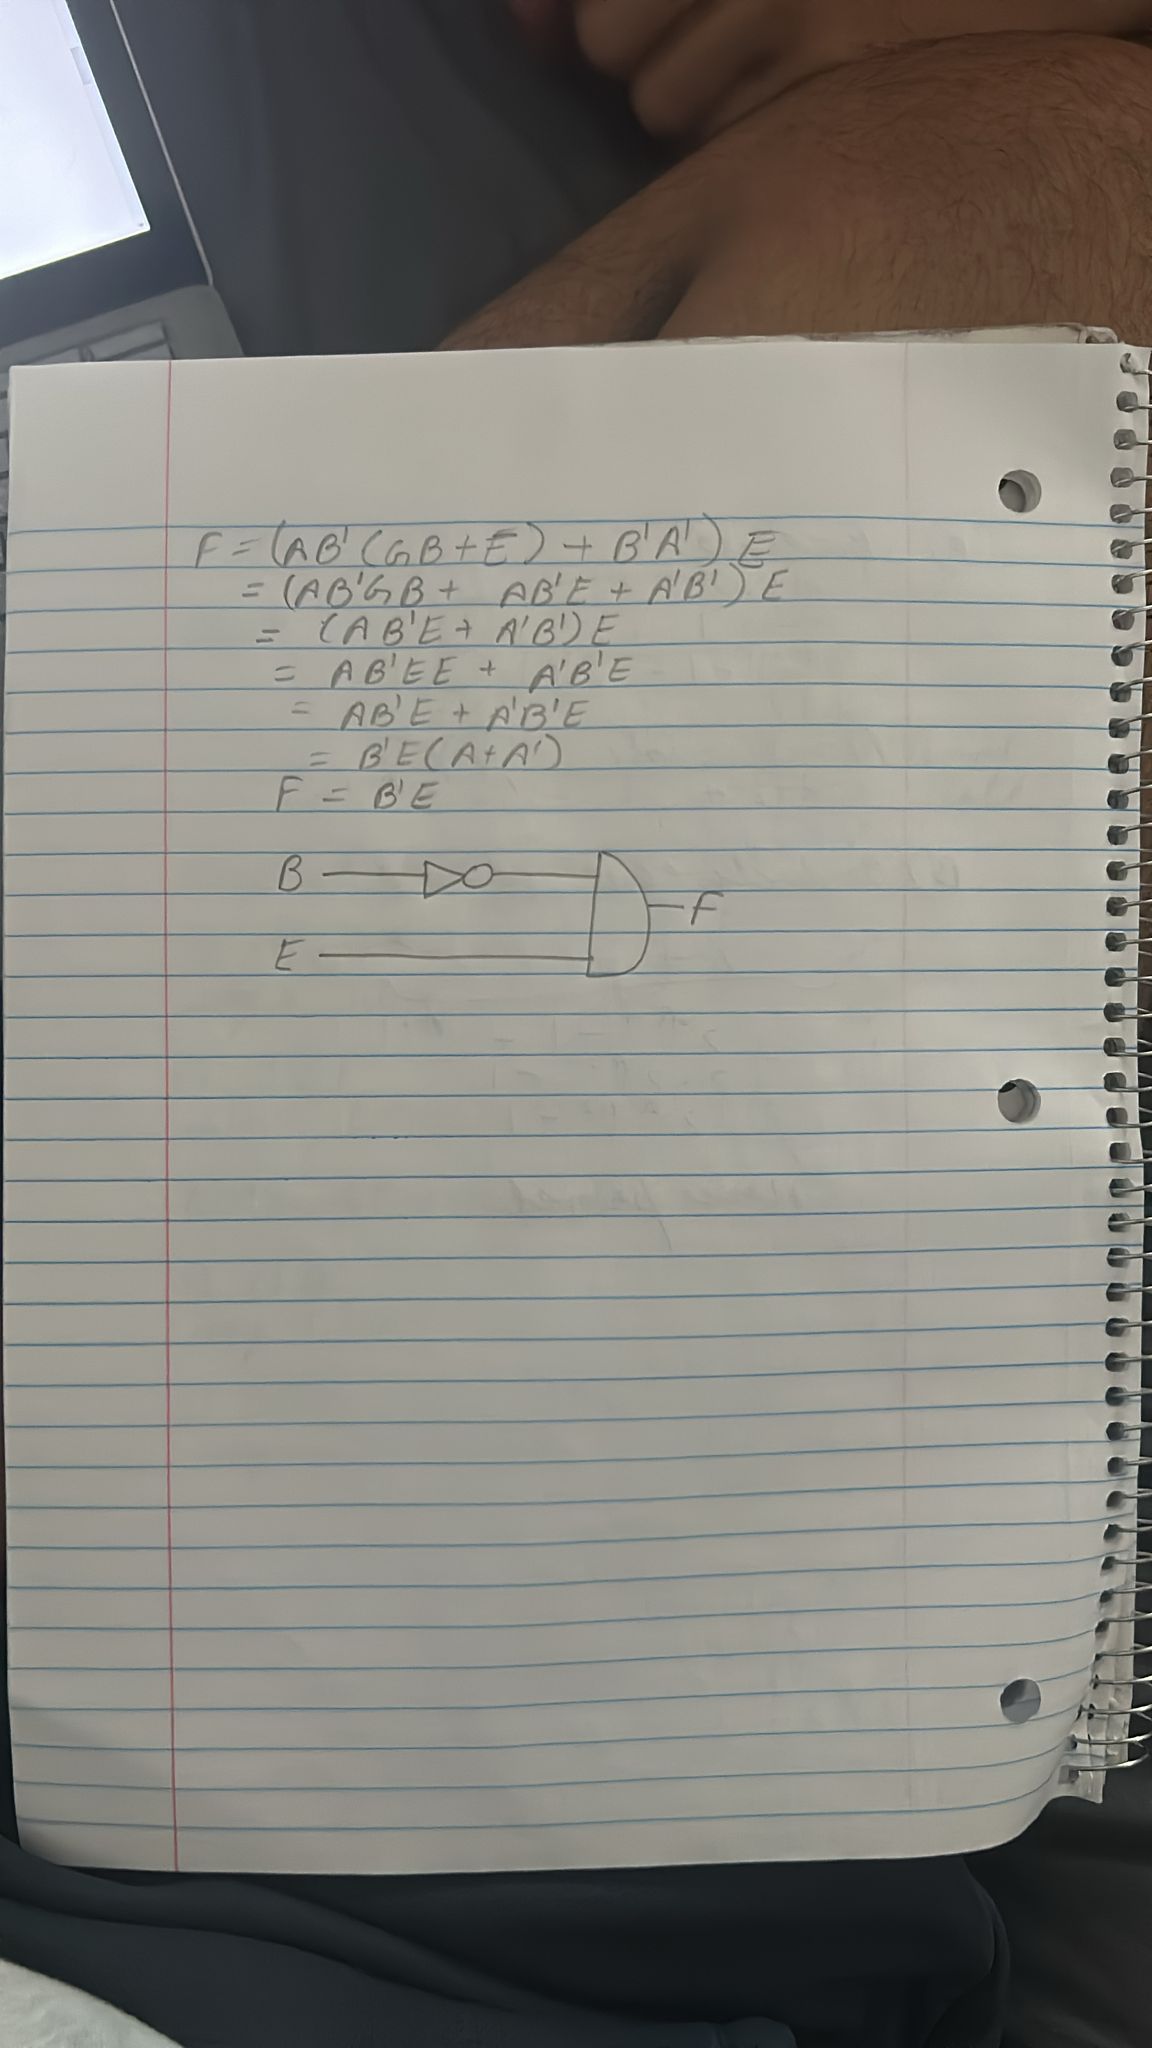 F = (AB'(GB+E) + B'A') E
= (AB'GB + AB'E + A'B') E
= (AB'E + A'B')E
= AB'EE + A'B'E
= AB'E + A'B'E
= B'E(A+A')
F = B'E
B
F
E